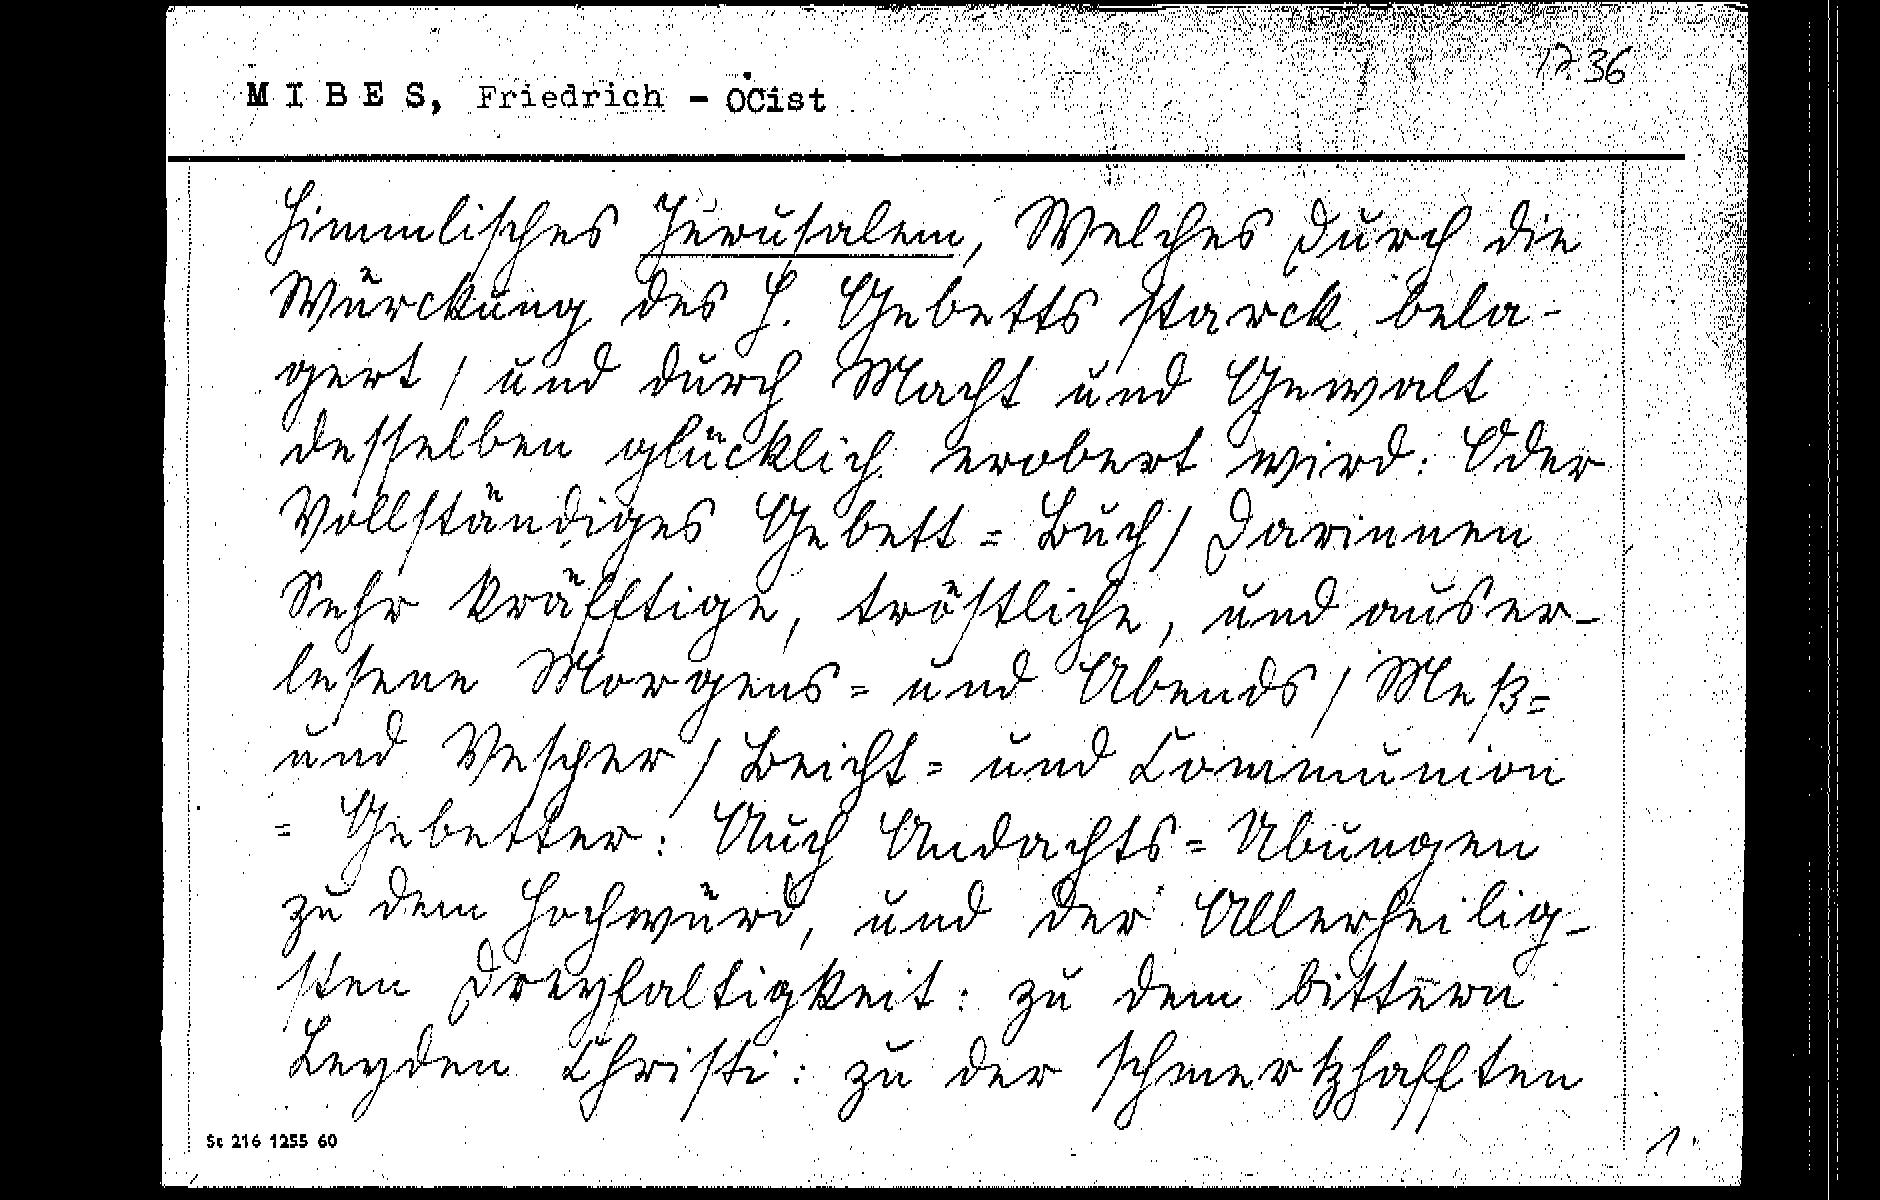 1736
MIBES, Friedrich - OCist
Himmlisches Jerusalem, Welches durch die
Würckung des H. Gebetts starck bela-
gert / und durch Macht und Gewalt
desselben glücklich erobert wird: Oder
Vollständiges Gebett = Buch / Darinnen
Sehr kräfftige, tröstliche, und auser-
lesene Morgens = und Abends / Meß=
und Vesper / Beicht = und Communion
= Gebetter: Auch Andachts = Ubungen
zu dem Hochwürd, und der Allerheilig-
sten Dreyfaltigkeit: zu dem bittern
Leyden Christi: zu der schmertzhafften
St 216 1255 60
1.